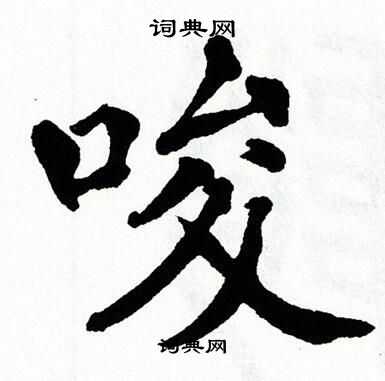 词典网
唆
词典网